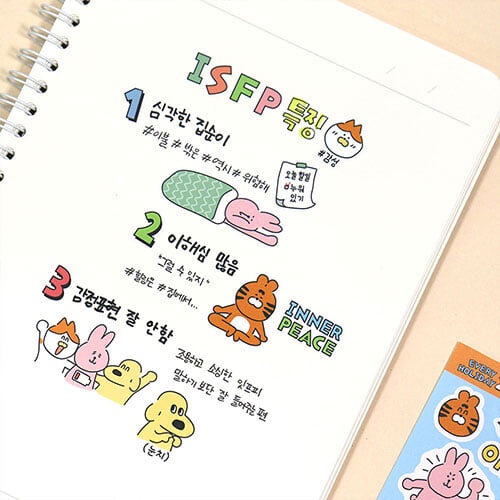 ISFP 특징
#감성
1 심각한 집순이
#이불 #밖은 #역시 #위험해
오늘 할일
누워
있기
2 이해심 많음
"그럴 수 있지"
#힐링은 #집에서...
INNER
PEACE
3 감정표현 잘 안함
조용하고 소심한 잇프피
말하기 보단 잘 들어주는 편
(눈치)
EVERY
HOLIDAY